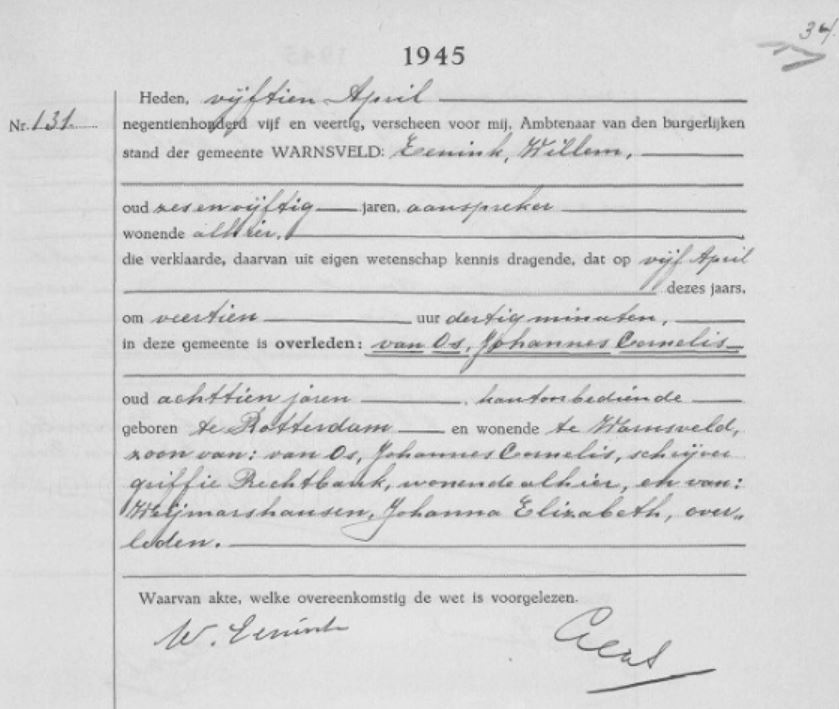 34.
1945
Heden, vijftien April
Nr. 131.
negentienhonderd vijf en veertig, verscheen voor mij, Ambtenaar van den burgerlijken
stand der gemeente WARNSVELD: Eenink, Willem,
oud zes en vijftig jaren, aanspreker
wonende alhier,
die verklaarde, daarvan uit eigen wetenschap kennis dragende, dat op vijf April
dezes jaars,
om veertien uur dertig minuten,
in deze gemeente is overleden: van Os, Johannes Cornelis
oud achttien jaren, kantoorbediende
geboren te Rotterdam en wonende te Warnsveld,
zoon van: van Os, Johannes Cornelis, schrijver
griffie Rechtbank, wonende alhier, en van:
Weijmarshausen, Johanna Elizabeth, over„
leden.
Waarvan akte, welke overeenkomstig de wet is voorgelezen.
W. Eenink